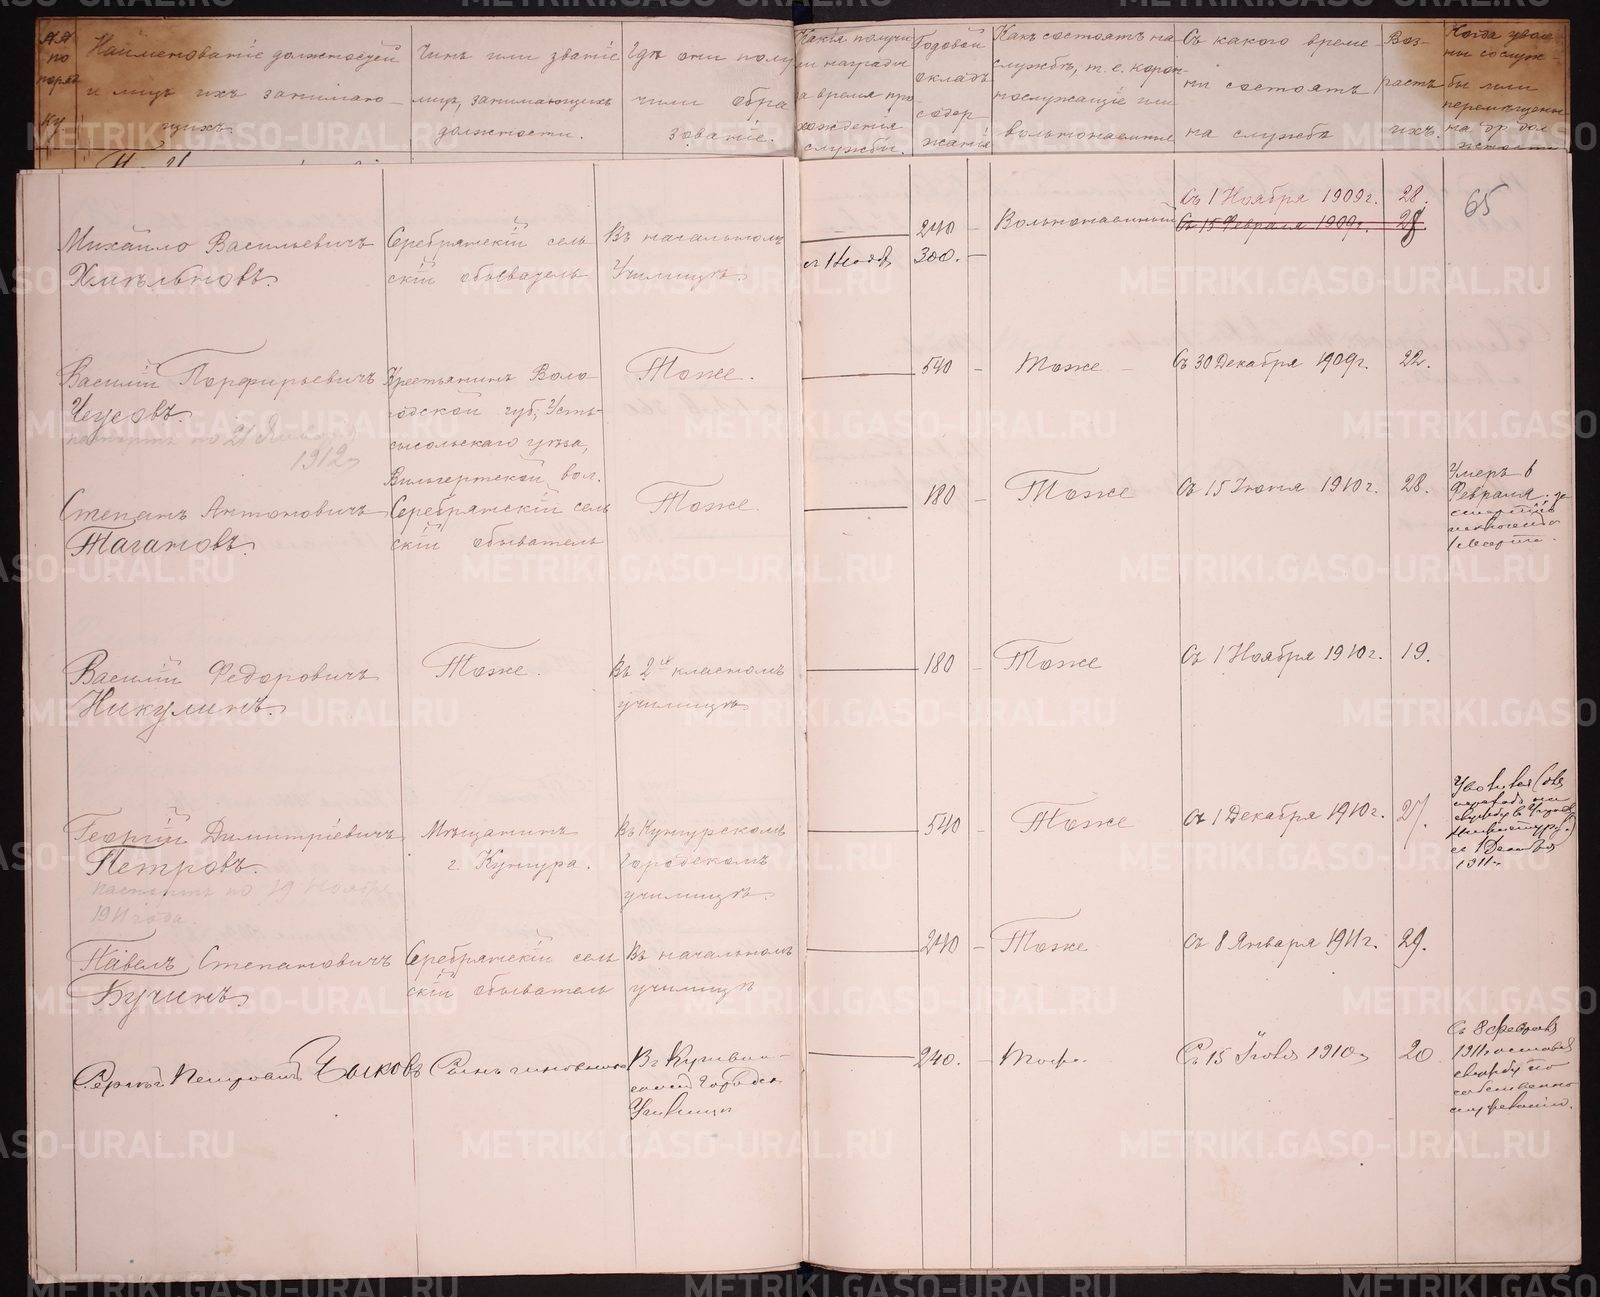 №№ по порядку
Наименованіе должностей
и лицъ ихъ занимаю-
щихъ.
Чинъ или званіе
лицъ, занимающихъ
должности.
Гдѣ они полу
чили обра
зованіе.
Какія получи
ли награды
за время про
хожденія
службы.
Годовой
окладъ
содер
жанія
Какъ состоятъ на
службѣ, т. е. корон-
нослужащіе или
вольнонаемные
Съ какого време
ни состоятъ
на службѣ
Воз-
растъ
ихъ.
Когда уволе
ны со служ-
бы или
перемѣщены
на др. дол
жности
65
Михаило Васильевичъ
Хмѣльновъ.
Серебрянскій сель
скій обыватель
Въ начальномъ
Училищѣ.
240
300.-
Вольнонаемный
Съ 1 Ноября 1909 г. 28.
Съ 15 Февраля 1909 г.
Василій Порфирьевичъ
Чеусовъ.
паспортъ по 21 Января
1912 г
Крестьянинъ Воло-
годской губ., Усть-
сысольскаго уѣзда,
Вильгертской вол.
Тоже.
540 -
Тоже -
Съ 30 Декабря 1909 г. 22.
Степанъ Антоновичъ
Тагановъ.
Серебрянскій сель
скій обыватель
Тоже.
180 -
Тоже
Съ 15 Іюня 1910 г. 28.
Умеръ 6
Февраля. за
смертію
Василій Федоровичъ
Никулинъ.
Тоже.
Въ 2х класномъ
училищѣ
180 -
Тоже
Съ 1 Ноября 1910 г. 19.
Георгій Димитріевичъ
Петровъ.
паспортъ по 19 Ноября
1911 года.
Мѣщанинъ
г. Кунгура.
Въ Кунгурскомъ
Городскомъ
училищѣ.
540 -
Тоже
Съ 1 Декабря 1910 г. 27.
1911 г.
Павелъ Степановичъ
Кучинъ.
Серебрянскій сель
скій обыватель
Въ начальномъ
училищѣ
240 -
Тоже
Съ 8 Января 1911 г. 29.
Сергѣй Петровичъ Чыковъ
Сынъ чиновника
240. -
Тоже.
Съ 15 1910 г 20
Съ 8 февраля
1911 оставилъ
службу по
собственно
му желанію.
METRIKI.GASO-URAL.RU